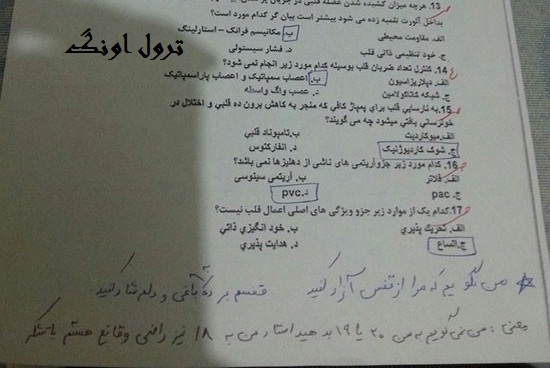 13. هرچه میزان کشیده شدن عضله قلبی در جریان پر شدن
ترول اونگ
بداخل آئورت تلمبه زده می شود بیشتر است بیان گر کدام مورد است؟
الف. مقاومت محیطی ب. مکانیسم فرانک - استارلینگ
ج. خود تنظیمی ذاتی قلب د. فشار سیستولی
14. کنترل تعداد ضربان قلب بوسیله کدام مورد زیر انجام نمی شود؟
الف. دپلاریزاسیون ب. اعصاب سمپاتیک و اعصاب پاراسمپاتیک
ج. شبکه کاتاکولامین د. عصب واگ واسطه
15. به نارسایی قلب برای پمپاژ کافی که منجر به کاهش برون ده قلبی و اختلال در
خونرسانی بافتی میشود چه می گویند؟
الف. میوکاردیت ب. تامپوناد قلبی
ج. شوک کاردیوژنیک د. انفارکتوس
16. کدام مورد زیر جزو آریتمی های ناشی از دهلیزها نمی باشد؟
الف. فلاتر ب. آریتمی سینوسی
ج. pac د. pvc
17. کدام یک از موارد زیر جزو ویژگی های اصلی اعمال قلب نیست؟
الف. تحریک پذیری ب. خود انگیزی ذاتی
ج. اتساع د. هدایت پذیری
من نگویم که مرا از قفس آزاد کنید قفسم برده به باغی و دلم شاد کنید
یعنی: من نمی گویم به من ۲۰ یا ۱۹ بدهید استاد من به ۱۸ نیز راضی و قانع هستم باتشکر